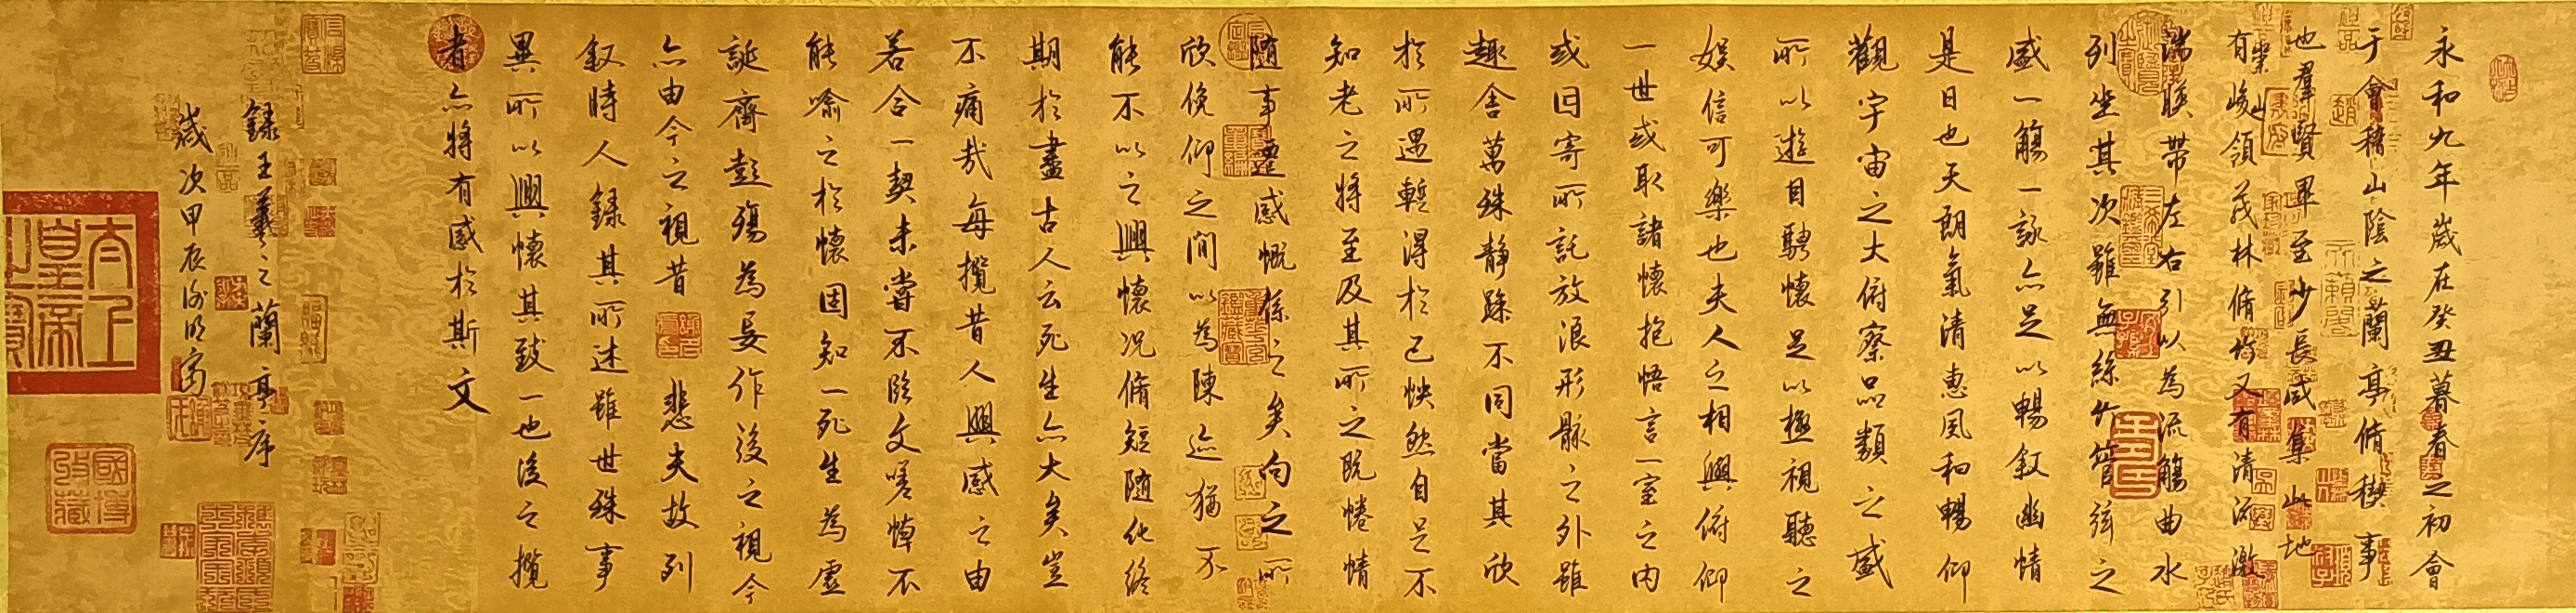 永和九年歲在癸丑暮春之初會
于會稽山陰之蘭亭脩稧事
也羣賢畢至少長咸集此地
有崇山峻領茂林脩竹又有清流激
湍暎帶左右引以為流觴曲水
列坐其次雖無絲竹管弦之
盛一觴一詠亦足以暢叙幽情
是日也天朗氣清惠風和暢仰
觀宇宙之大俯察品類之盛
所以遊目騁懷足以極視聽之
娛信可樂也夫人之相與俯仰
一世或取諸懷抱悟言一室之內
或因寄所託放浪形骸之外雖
趣舍萬殊靜躁不同當其欣
於所遇蹔得於己怏然自足不
知老之將至及其所之既惓情
隨事遷感慨係之矣向之所
欣俛仰之間以為陳迹猶不
能不以之興懷況脩短隨化終
期於盡古人云死生亦大矣豈
不痛哉每攬昔人興感之由
若合一契未嘗不臨文嗟悼不
能喻之於懷固知一死生為虛
誕齊彭殤為妄作後之視今
亦由今之視昔 悲夫故列
叙時人錄其所述雖世殊事
異所以興懷其致一也後之攬
者亦將有感於斯文
錄王羲之蘭亭序
歲次甲辰
太上皇帝之寶
國博收藏